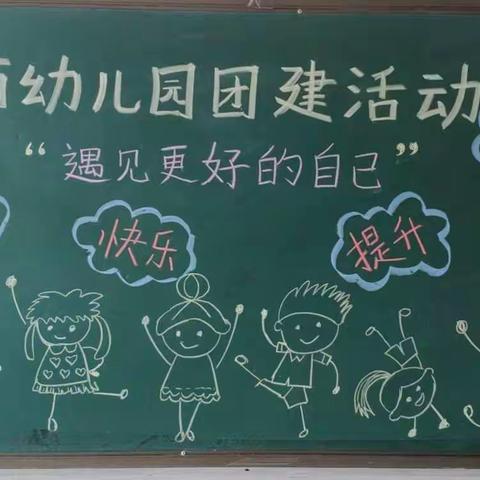 幼儿园团建活动
“遇见更好的自己”
快乐
提升